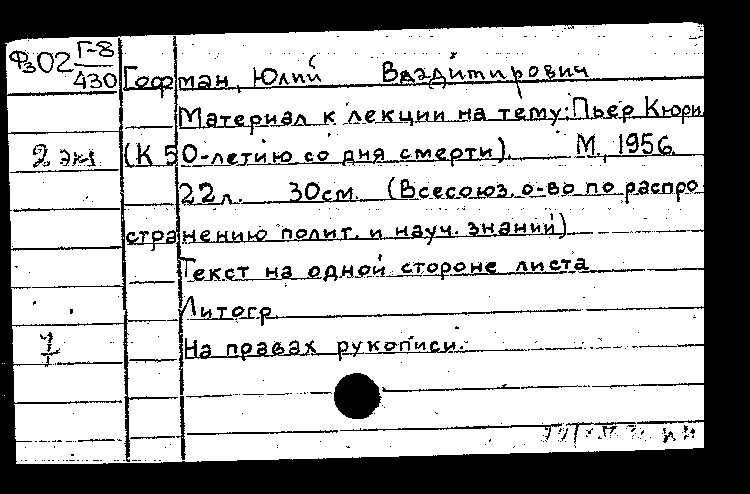 Фз02 Г-8
430
Гофман, Юлий Владимирович
Материал к лекции на тему: Пьер Кюри
2 экз (К 50-летию со дня смерти). М., 1956.
22л. 30см. (Всесоюз. о-во по распро-
странению полит. и науч. знаний)
Текст на одной стороне листа
Литогр.
На правах рукописи.